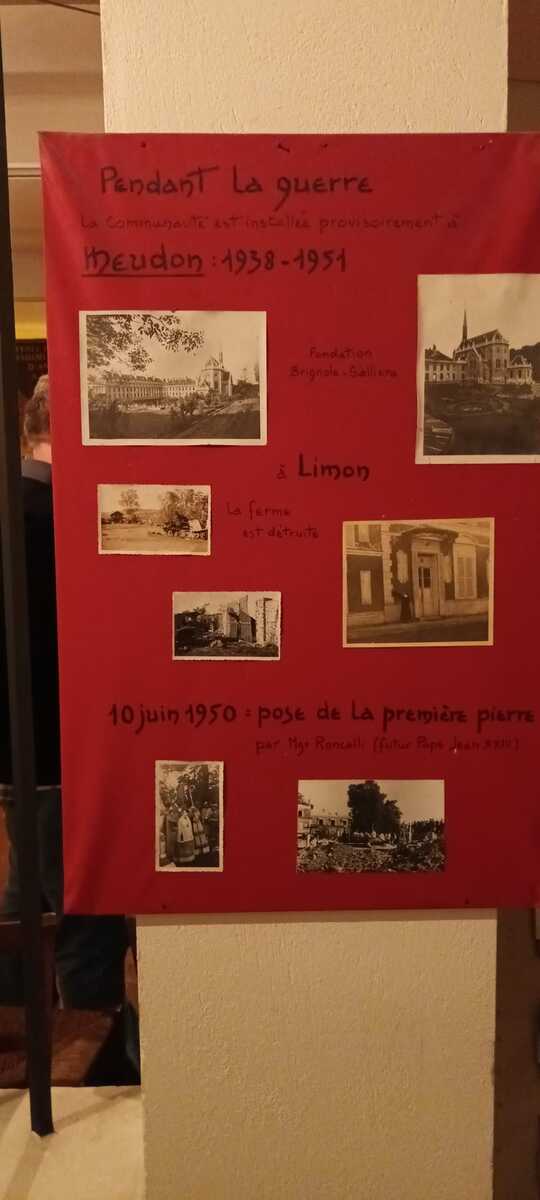 Pendant La guerre
La Communauté est installée provisoirement à
Meudon : 1938-1951
Fondation
Brignole-Galliera
à Limon
La ferme
est détruite
10 juin 1950 = pose de la première pierre
par Mgr Roncalli (futur Pape Jean XXIII)